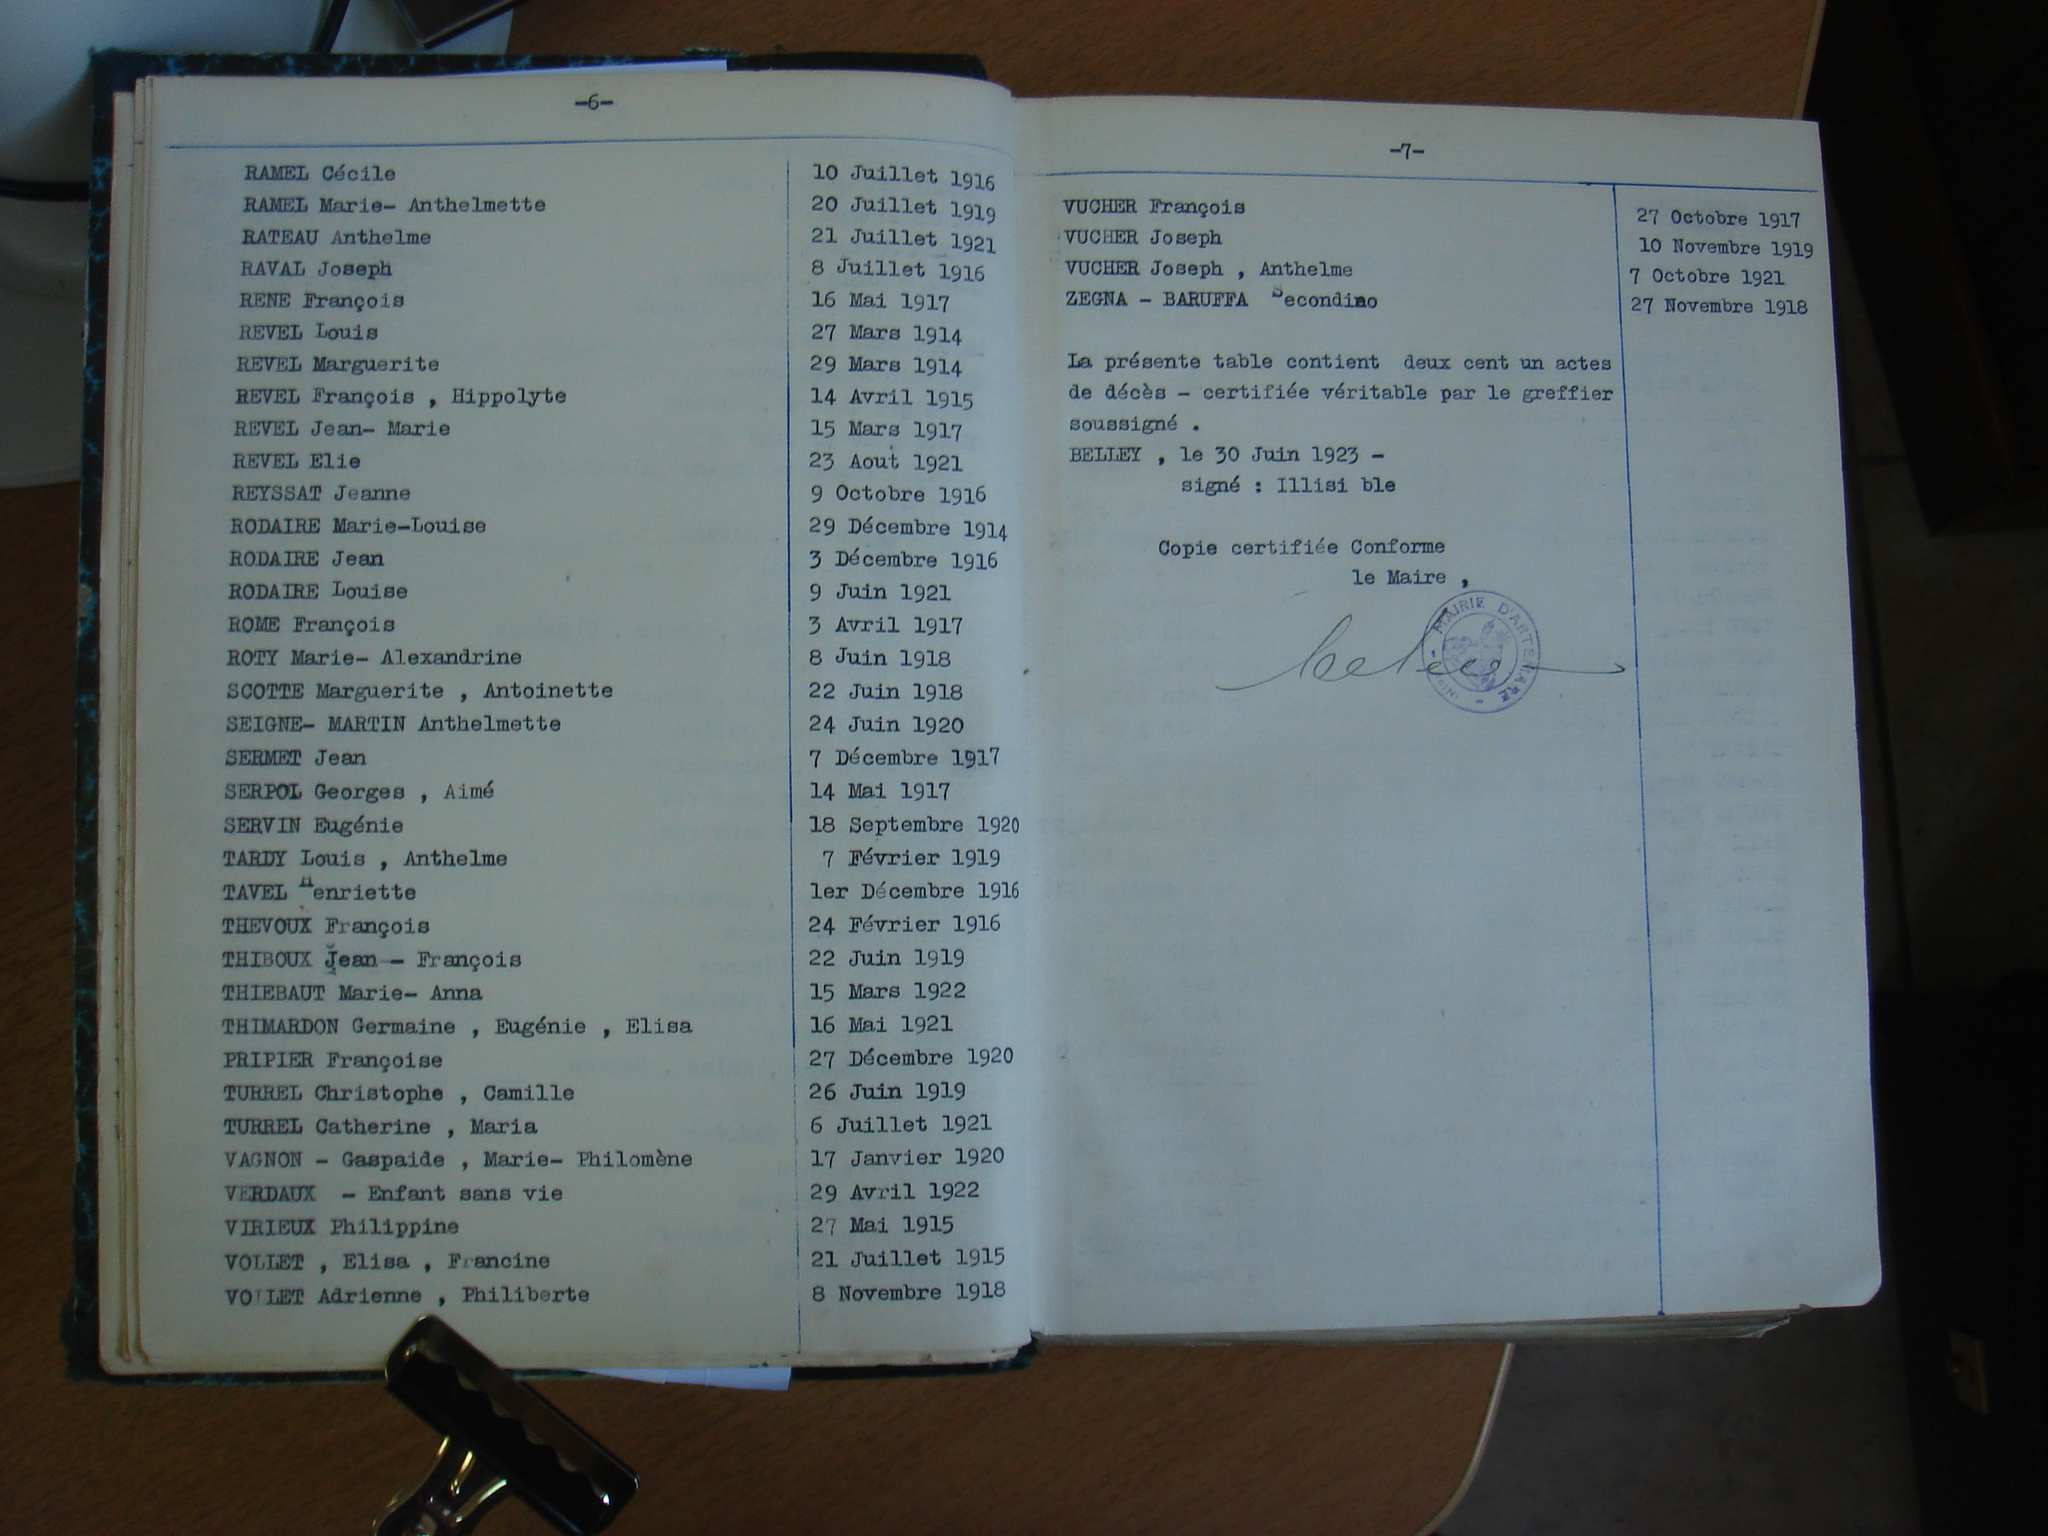 -6-
RAMEL Cécile 10 Juillet 1916
RAMEL Marie- Anthelmette 20 Juillet 1919
RATEAU Anthelme 21 Juillet 1921
RAVAL Joseph 8 Juillet 1916
RENE François 16 Mai 1917
REVEL Louis 27 Mars 1914
REVEL Marguerite 29 Mars 1914
REVEL François , Hippolyte 14 Avril 1915
REVEL Jean- Marie 15 Mars 1917
REVEL Elie 23 Aout 1921
REYSSAT Jeanne 9 Octobre 1916
RODAIRE Marie-Louise 29 Décembre 1914
RODAIRE Jean 3 Décembre 1916
RODAIRE Louise 9 Juin 1921
ROME François 3 Avril 1917
ROTY Marie- Alexandrine 8 Juin 1918
SCOTTE Marguerite , Antoinette 22 Juin 1918
SEIGNE- MARTIN Anthelmette 24 Juin 1920
SERMET Jean 7 Décembre 1917
SERPOL Georges , Aimé 14 Mai 1917
SERVIN Eugénie 18 Septembre 1920
TARDY Louis , Anthelme 7 Février 1919
TAVEL Henriette 1er Décembre 1916
THEVOUX François 24 Février 1916
THIBOUX Jean - François 22 Juin 1919
THIEBAUT Marie- Anna 15 Mars 1922
THIMARDON Germaine , Eugénie , Elisa 16 Mai 1921
PRIPIER Françoise 27 Décembre 1920
TURREL Christophe , Camille 26 Juin 1919
TURREL Catherine , Maria 6 Juillet 1921
VAGNON - Gaspaide , Marie- Philomène 17 Janvier 1920
VERDAUX - Enfant sans vie 29 Avril 1922
VIRIEUX Philippine 27 Mai 1915
VOLLET , Elisa , Francine 21 Juillet 1915
VOLLET Adrienne , Philiberte 8 Novembre 1918
-7-
VUCHER François 27 Octobre 1917
VUCHER Joseph 10 Novembre 1919
VUCHER Joseph , Anthelme 7 Octobre 1921
ZEGNA - BARUFFA Secondino 27 Novembre 1918
La présente table contient deux cent un actes
de décès - certifiée véritable par le greffier
soussigné .
BELLEY , le 30 Juin 1923 -
signé : Illisi ble
Copie certifiée Conforme
le Maire ,
MAIRIE D'ARTEMARE